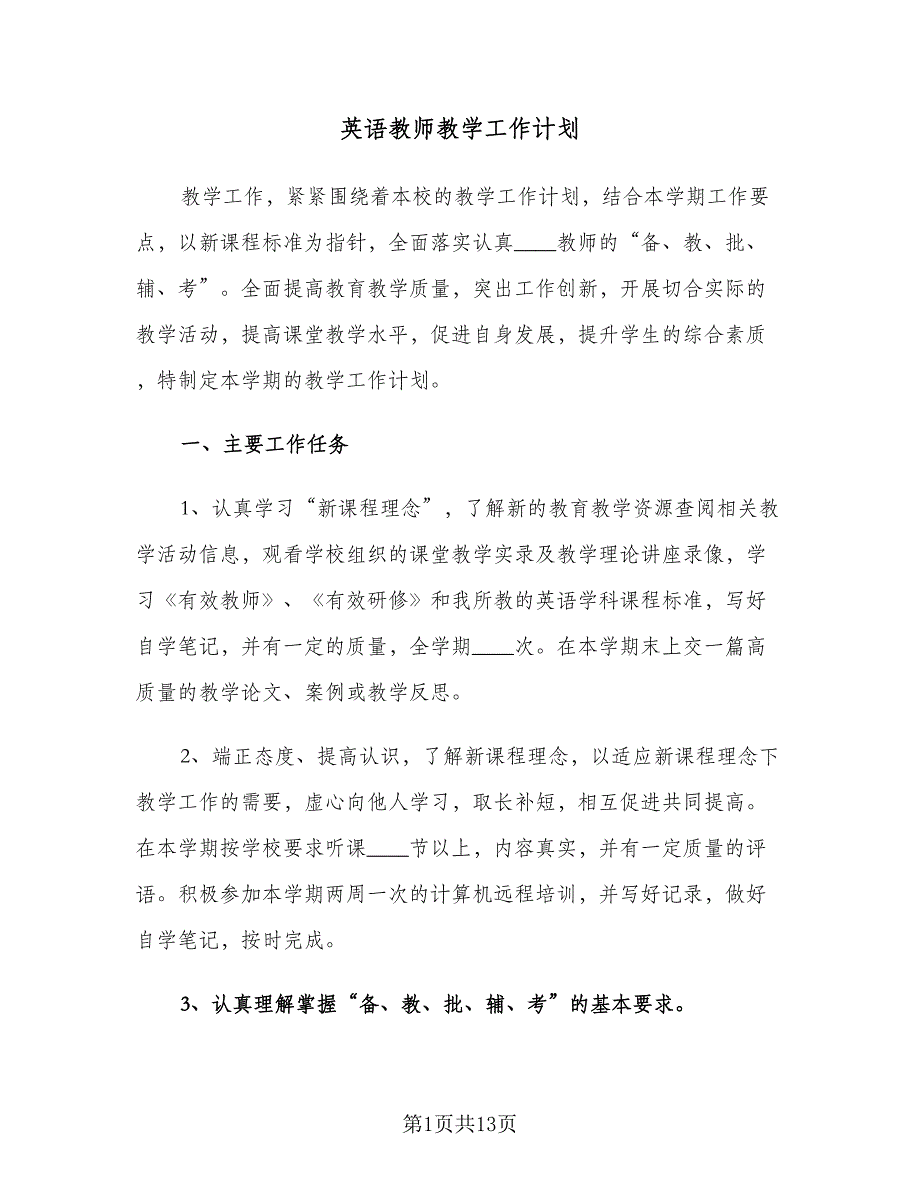 英语教师教学工作计划
教学工作，紧紧围绕着本校的教学工作计划，结合本学期工作要
点，以新课程标准为指针，全面落实认真____教师的“备、教、批、
辅、考”。全面提高教育教学质量，突出工作创新，开展切合实际的
教学活动，提高课堂教学水平，促进自身发展，提升学生的综合素质
，特制定本学期的教学工作计划。
一、主要工作任务
1、认真学习“新课程理念”，了解新的教育教学资源查阅相关教
学活动信息，观看学校组织的课堂教学实录及教学理论讲座录像，学
习《有效教师》、《有效研修》和我所教的英语学科课程标准，写好
自学笔记，并有一定的质量，全学期____次。在本学期末上交一篇高
质量的教学论文、案例或教学反思。
2、端正态度、提高认识，了解新课程理念，以适应新课程理念下
教学工作的需要，虚心向他人学习，取长补短，相互促进共同提高。
在本学期按学校要求听课____节以上，内容真实，并有一定质量的评
语。积极参加本学期两周一次的计算机远程培训，并写好记录，做好
自学笔记，按时完成。
3、认真理解掌握“备、教、批、辅、考”的基本要求。
第1页共13页